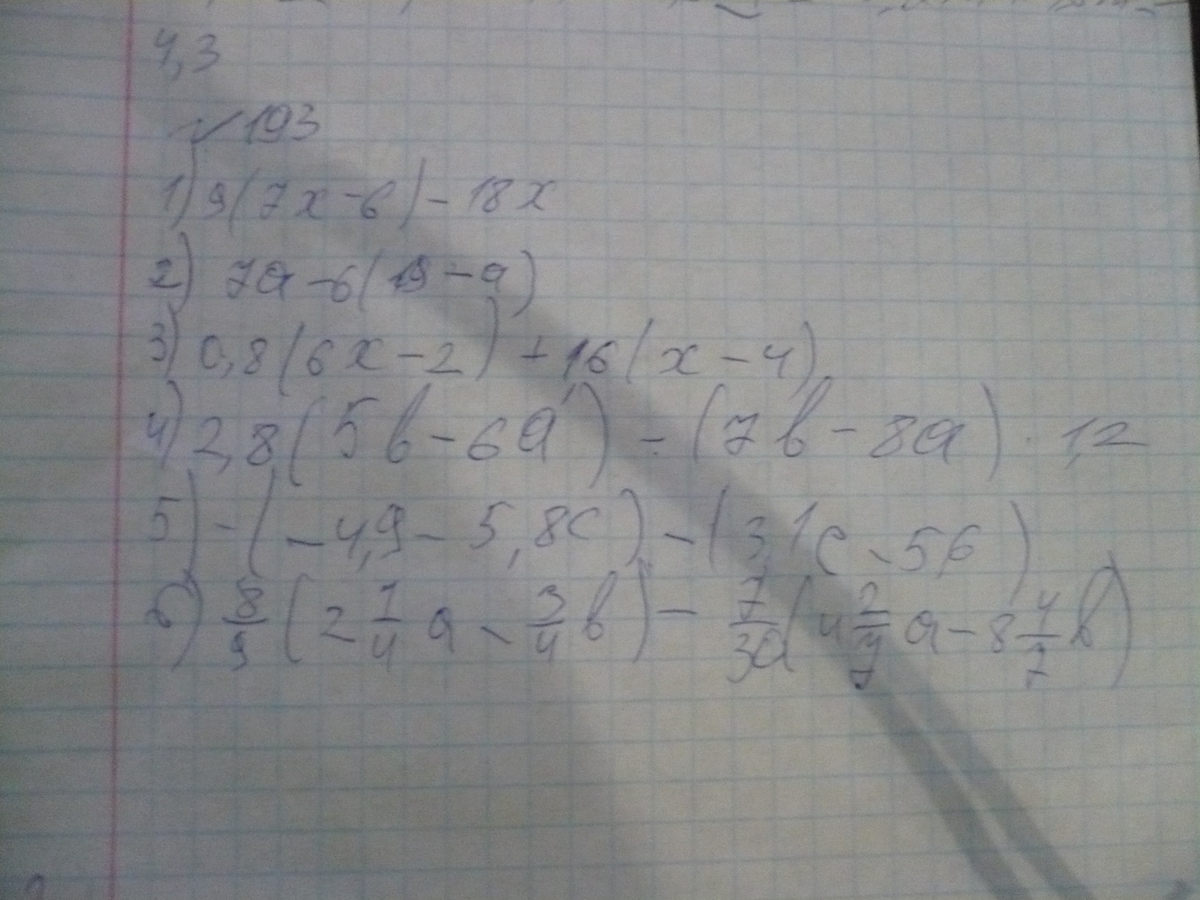 4,3
√193
1) 9(7x-6)-18x
2) 7a-6(19-a)
3) 0,8(6x-2)+1,6(x-4)
4) 2,8(5b-6a)-(7b-8a)·1,2
5) -(-4,9-5,8c)-(3,1c-5,6)
6) 8/9(2 1/4a-3/4b)-7/30(4 2/7a-8 4/7b)